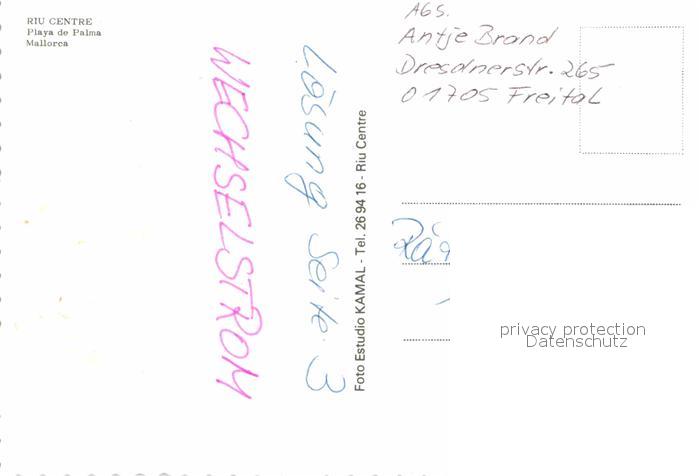 RIU CENTRE
Playa de Palma
Mallorca
WECHSELSTROM
Lösung Seite 3
Foto Estudio KAMAL - Tel. 26 94 16 - Riu Centre
Abs.
Antje Brand
Dresdnerstr. 265
01705 Freital
privacy protection
Datenschutz